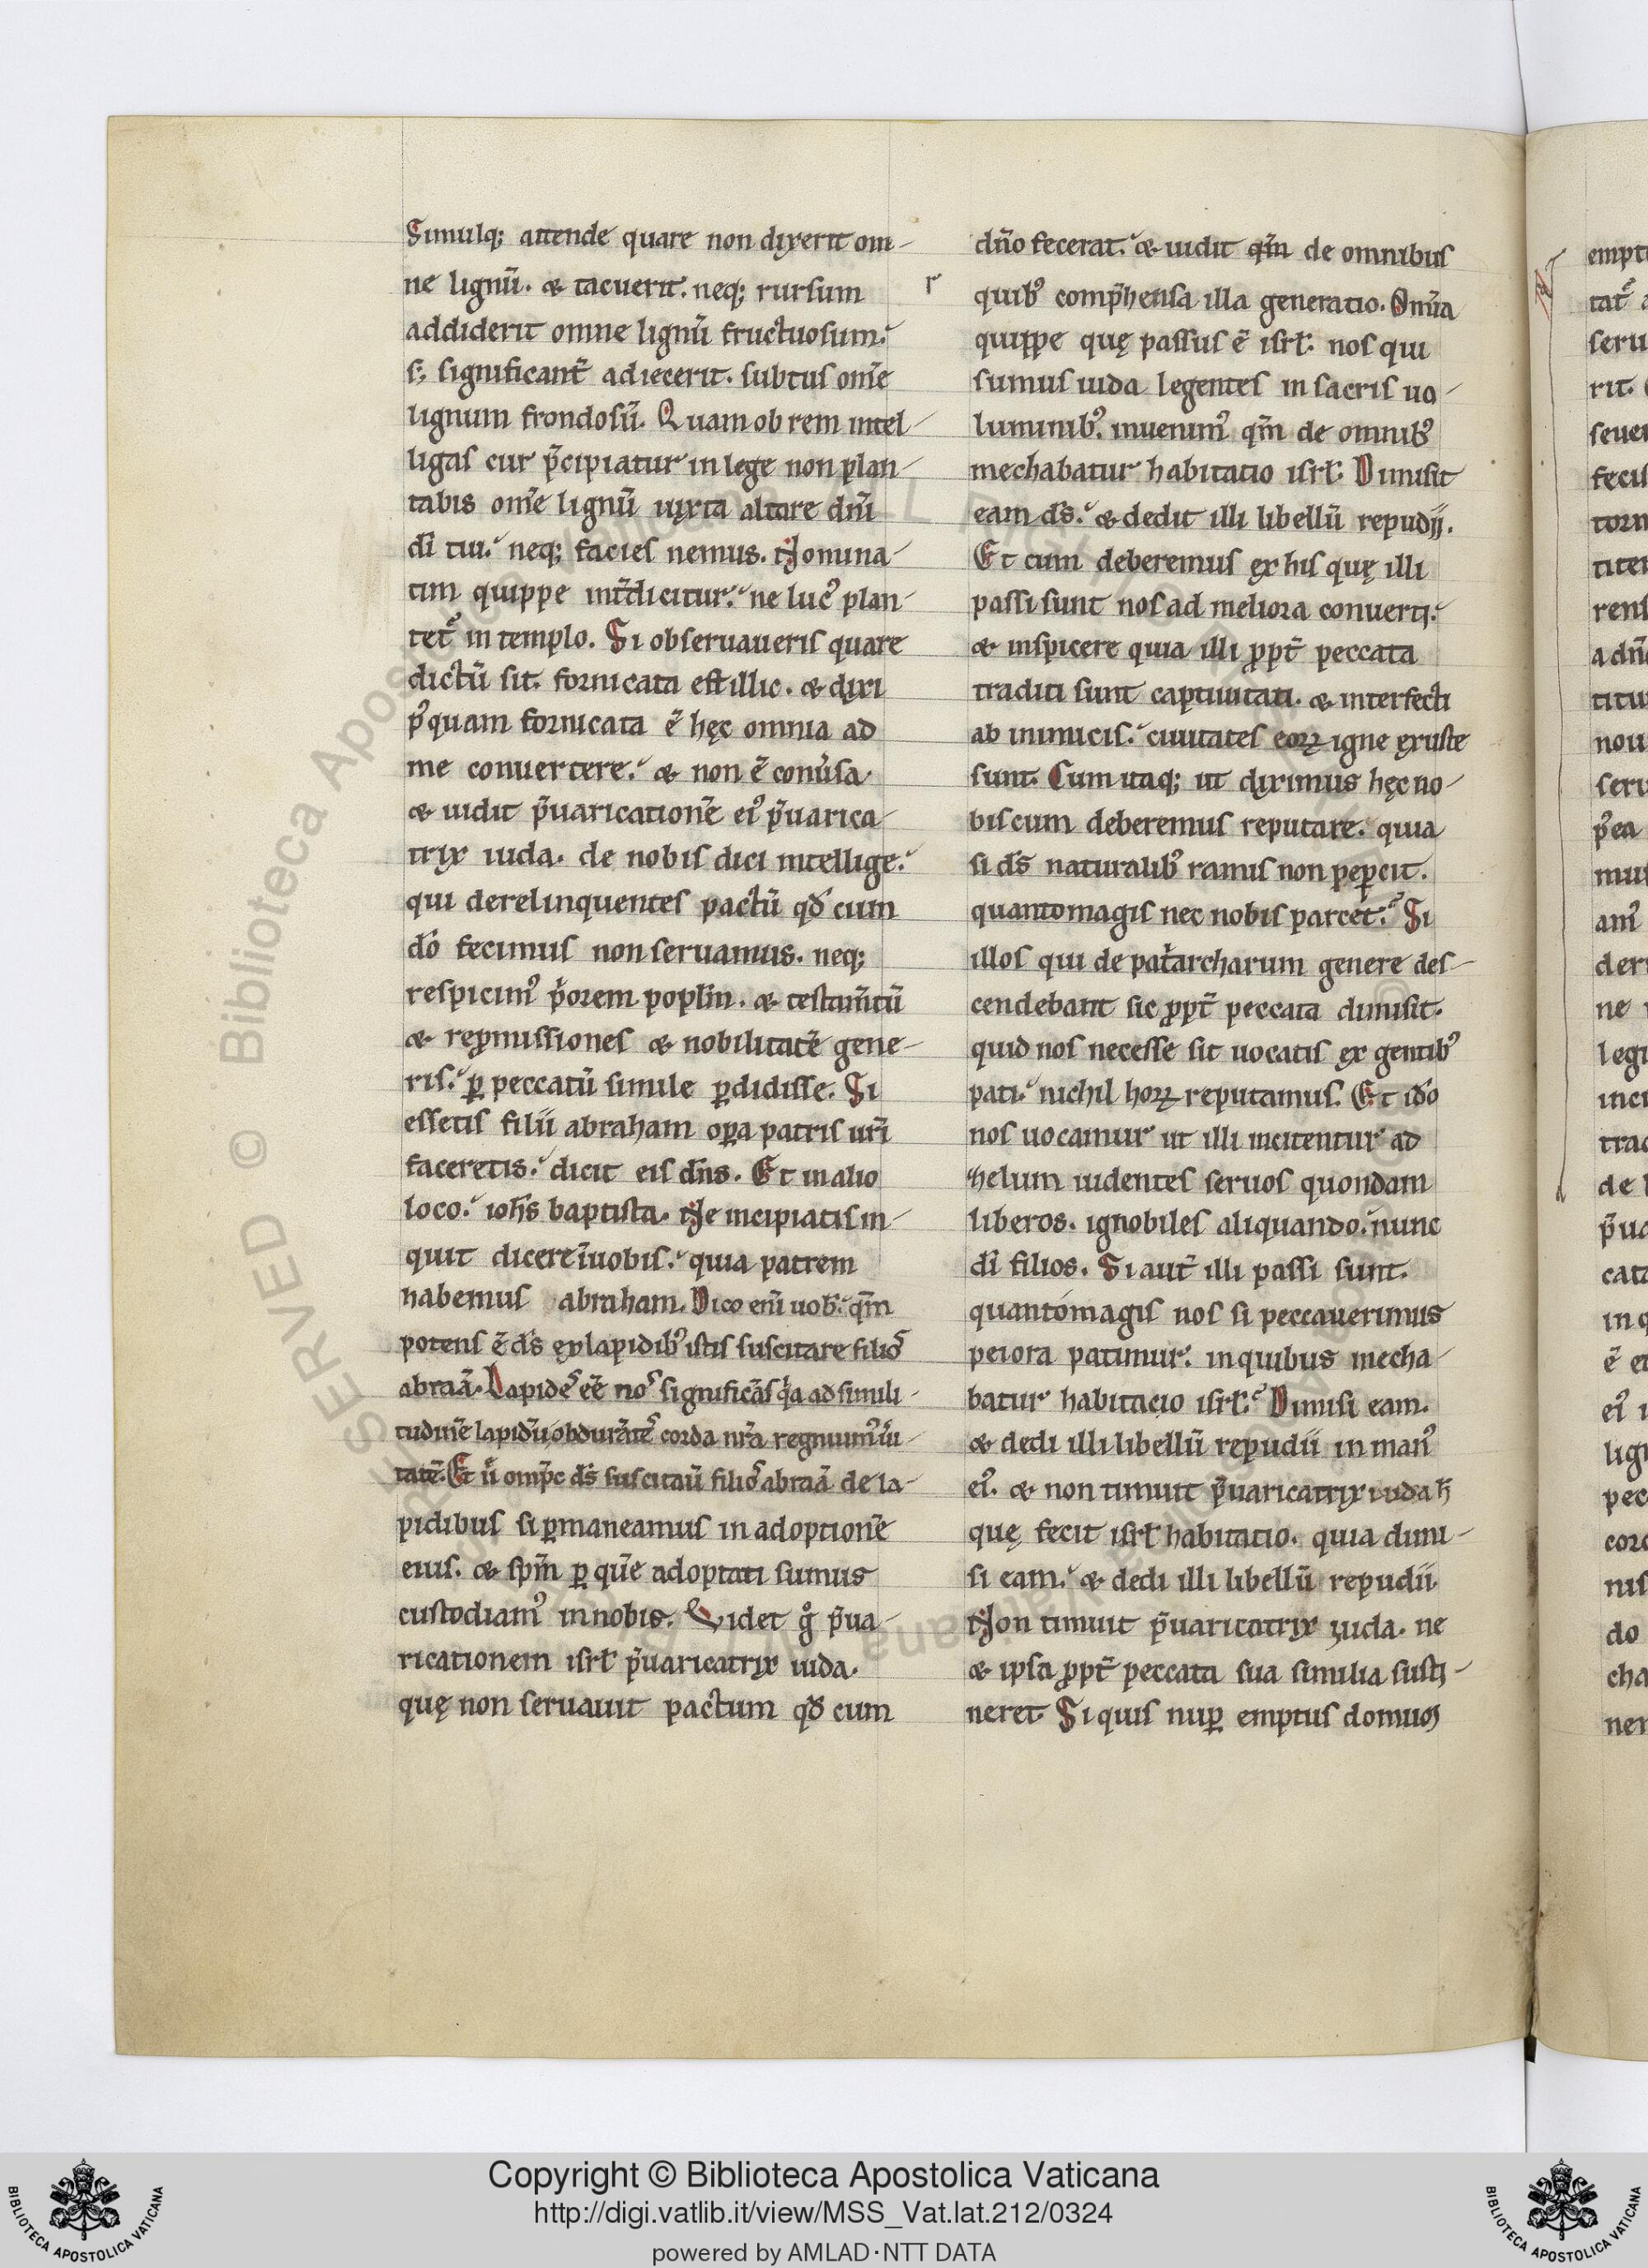 Simulq; attende quare non dixerit om-
ne lignū. & tacuerit. neq; rursum
addiderit omne lignū fructuosum.
s; significant̄ adiecerit. subtus om̄e
lignum frondosū. Quam ob rem intel-
ligas cur p̄cipiatur in lege non plan-
tabis om̄e lignū iuxta altare dn̄i
dī tui. neq; facies nemus. Nomina-
tim quippe int̄dicitur. ne luc᾿ plan-
tet᾿ in templo. Si obseruaueris quare
dictū sit. fornicata est illic. & dixi
p᾿quam fornicata ē hęc omnia ad
me conuertere. & non ē conu̾sa
& uidit p̄uaricationē ei᾿ p̄uarica-
trix iuda. de nobis dici intellige.
qui derelinquentes pactū qd̄ cum
dō fecimus non seruamus. neq;
respicim᾿ p̾orem popl̄m. & testam̄tū
& repromissiones & nobilitatē gene-
ris. ꝑ peccatū simile ꝑdidisse. Si
essetis filii abraham oꝑa patris ur̄i
faceretis. dicit eis dn̄s. Et in alio
loco. ioh̄s baptista. Ne incipiatis in-
quit dicere ī uobis. quia patrem
habemus abraham. Dico eni̅ uob̄. qm̄
potens ē ds̄ ex lapidib᾿ istis suscitare filios
abraā. Lapides eē nos significās q̾a ad simili-
tudinē lapidū obdurātes corda nr̄a
tatē. Et u̾ omp̄c ds̄ filios abraā de la-
pidibus si ꝑmaneamus in adoptionē
eius. & sp̄m ꝑ quē adoptati sumus
custodiam᾿ in nobis. Videt g̊ p̄ua-
ricationem isrl̄ p̄uaricatrix iuda.
quę non seruauit pactum qd̄ cum
r
dn̄o fecerat. & uidit qm̄ de omnibus
quib᾿ comp̄hensa illa generatio. Om̄ia
quippe quę passus ē isrl̄. nos qui
sumus iuda legentes in sacris uo-
luminib᾿. inuenim᾿ qm̄ de omnib᾿
mechabatur habitatio isrl̄. Dimisit
eam ds̄. & dedit illi libellū repudij.
Et cum deberemus ex his quę illi
passi sunt nos ad meliora conuerti.
& inspicere quia illi ꝓpt̄ peccata
traditi sunt captiuitati. & interfecti
ab inimicis. ciuitates eoꝝ igne exuste
sunt. Cum itaq; ut diximus hęc no-
biscum deberemus reputare. quia
si ds̄ naturalib᾿ ramis non peꝑcit.
quantomagis nec nobis parcet. Si
illos qui de pat̾archarum genere des-
cendebant sic ꝓpt̄ peccata dimisit.
quid nos necesse sit uocatis ex gentib᾿
pati. nichil hoꝝ reputamus. Et id̄o
nos uocamur ut illi incitentur ad
zelum uidentes seruos quondam
liberos. ignobiles aliquando. nunc
dī filios. Si aut̄ illi passi sunt.
quantomagis nos si peccauerimus
peiora patimur. in quibus mecha-
batur habitacio isrl̄. Dimisi eam.
& dedi illi libellū repudii in man᾿
ei᾿. & non timuit p̄uaricatrix iuda h̄
quę fecit isrl̄ habitatio. quia dimi-
si eam. & dedi illi libellū repudii
Non timuit p̄uaricatrix iuda. ne
& ipsa ꝓpt̄ peccata sua similia susti-
neret. Si quis nuꝑ emptus domus
Copyright © Biblioteca Apostolica Vaticana
http://digi.vatlib.it/view/MSS_Vat.lat.212/0324
powered by AMLAD·NTT DATA
BIBLIOTECA APOSTOLICA VATICANA
BIBLIOTECA APOSTOLICA VATICANA